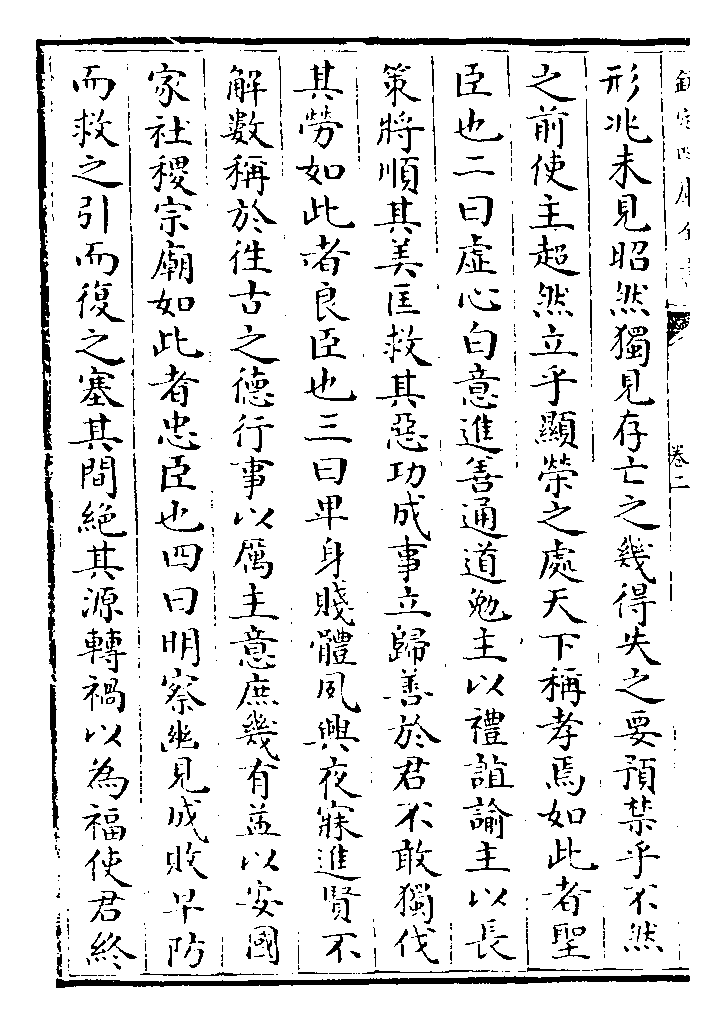 欽定四庫全書
卷二
形兆未見昭然獨見存亡之幾得失之要預禁乎不然
之前使主超然立乎顯榮之處天下稱孝焉如此者聖
臣也二曰虛心白意進善通道勉主以禮誼諭主以長
策將順其美匡救其惡功成事立歸善於君不敢獨伐
其勞如此者良臣也三曰卑身賤體夙興夜寐進賢不
解數稱於徃古之德行事以厲主意庶幾有益以安國
家社稷宗廟如此者忠臣也四曰明察幽見成敗早防
而救之引而復之塞其間絶其源轉禍以為福使君終